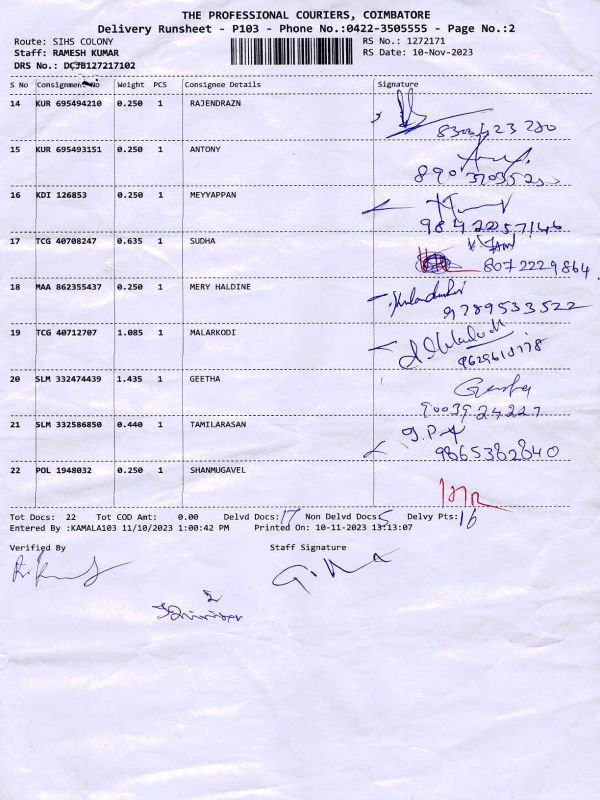 THE PROFESSIONAL COURIERS, COIMBATORE
Delivery Runsheet - P103 - Phone No.:0422-3505555 - Page No.:2
Route: SIHS COLONY RS No.: 1272171
Staff: RAMESH KUMAR RS Date: 10-Nov-2023
DRS No.: DCJB127217102
S No Consignment No Weight PCS Consignee Details Signature
14 KUR 695494210 0.250 1 RAJENDRAZN
15 KUR 695493151 0.250 1 ANTONY
16 KDI 126853 0.250 1 MEYYAPPAN
17 TCG 40708247 0.635 1 SUDHA
8072229864
18 MAA 862355437 0.250 1 MERY HALDINE
9789533522
19 TCG 40712707 1.085 1 MALARKODI
20 SLM 332474439 1.435 1 GEETHA
Geetha
9003924227
21 SLM 332586850 0.440 1 TAMILARASAN
9865382840
22 POL 1948032 0.250 1 SHANMUGAVEL
Tot Docs: 22 Tot COD Amt: 0.00 Delvd Docs: 17 Non Delvd Docs: 5 Delvy Pts: 16
Entered By :KAMALA103 11/10/2023 1:00:42 PM Printed On: 10-11-2023 13:13:07
Verified By Staff Signature